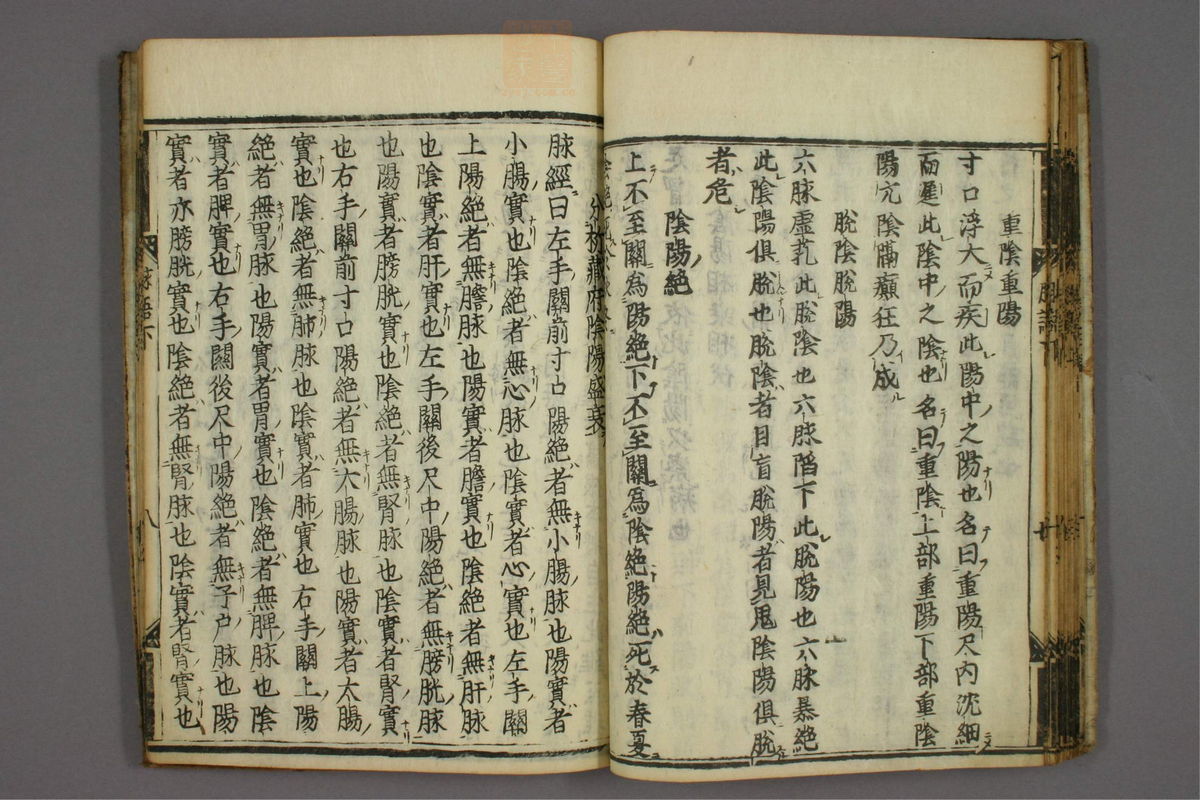 重陰重陽
寸口浮大而疾此陽中之陽也名曰重陽尺内沈細
而遲此陰中之陰也名曰重陰上部重陽下部重陰
陽亢陰隔癲狂乃成
脫陰脫陽
六脉虛芤此脫陰也六脉陷下此脫陽也六脉暴絶
此陰陽俱脫也脫陰者目盲脫陽者見鬼陰陽俱脫
者危
陰陽絶
上不至關為陽絶下不至關為陰絶陽絶死於春夏
分析藏府陰陽盛衰
脉經曰左手關前寸口陽絶者無小腸脉也陽實者
小腸實也陰絶者無心脉也陰實者心實也左手關
上陽絶者無膽脉也陽實者膽實也陰絶者無肝脉
也陰實者肝實也左手關後尺中陽絶者無膀胱脉
也陽實者膀胱實也陰絶者無腎脉也陰實者腎實
也右手關前寸口陽絶者無大腸脉也陽實者大腸
實也陰絶者無肺脉也陰實者肺實也右手關上陽
絶者無胃脉也陽實者胃實也陰絶者無脾脉也陰
實者脾實也右手關後尺中陽絶者無子户脉也陽
實者亦膀胱實也陰絶者無腎脉也陰實者腎實也
脉語下
八